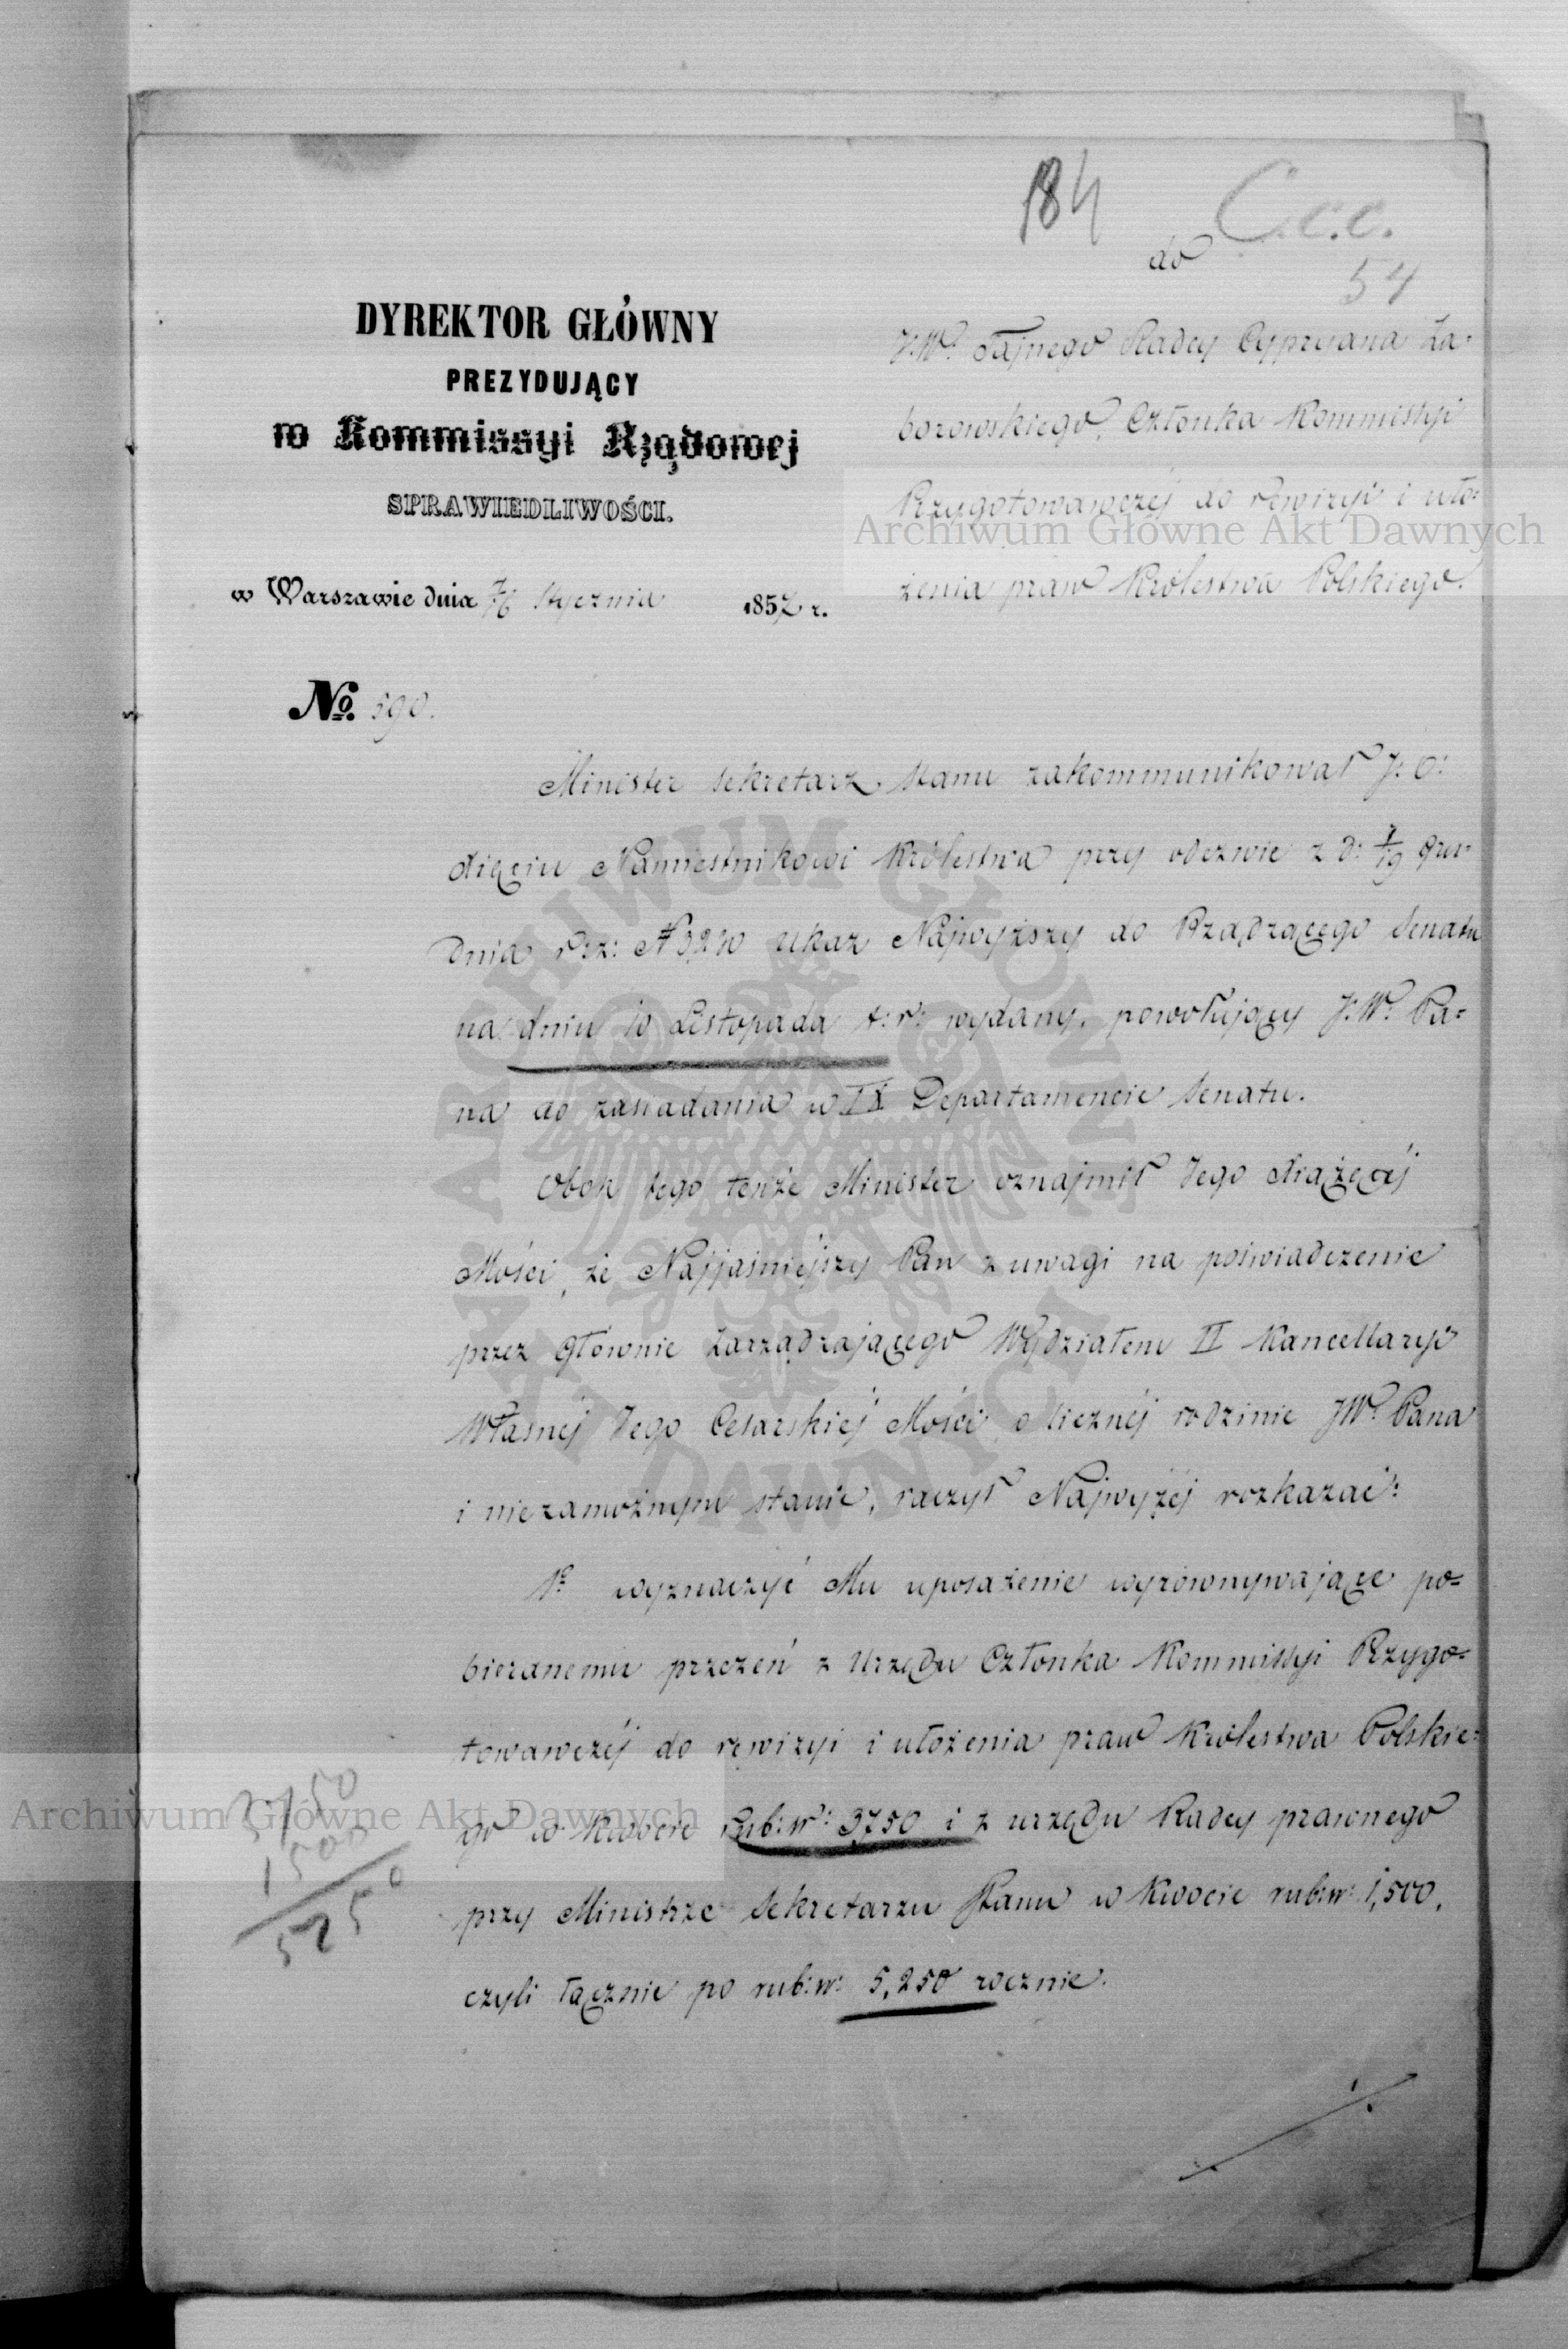 184
C.c.c.
54
do
DYREKTOR GŁÓWNY
PREZYDUJĄCY
w Kommissyi Rządowej
SPRAWIEDLIWOŚCI.
w Warszawie dnia Stycznia 1857 r.
No. 590.
JW. Tajnego Radcy Cypryana Za-
borowskiego, Członka Kommissyi
Przygotowawczéj do rewizyi i uło-
żenia praw Królestwa Polskiego.
Minister Sekretarz Stanu zakommunikował J: O:
Xięciu Namiestnikowi Królestwa przy odezwie z d: 7/19 Gru-
dnia r: z: N 3,230 ukaz Najwyższy do Rządzącego Senatu
na dniu 10 Listopada t: r: wydany, powołujący J:W. Pa-
na do zasiadania w IX Departamencie Senatu.
Obok tego tenże Minister oznajmił Jego Xiążęcéj
Mości, że Najjaśniejszy Pan z uwagi na poświadczenie
przez Głównie Zarządzającego Wydziałem II Kancellaryi
Własnéj Jego Cesarskiéj Mości o licznéj rodzinie JW. Pana
i niezamożnym stanie, raczył Najwyżéj rozkazać:
1o wyznaczyć Mu uposażenie wyrównywające po-
bieranemu przezeń z Urzędu Członka Kommissyi Przygo-
towawczéj do rewizyi i ułożenia praw Królestwa Polskie-
go w kwocie rub: sr: 3750 i z urzędu Radcy prawnego
przy Ministrze Sekretarzu Stanu w kwocie rub: sr: 1,500,
czyli łącznie po rub: sr: 5,250 rocznie.
3750
1500
5250
Archiwum Główne Akt Dawnych
Archiwum Główne Akt Dawnych
ARCHIWUM GŁÓWNE AKT DAWNYCH